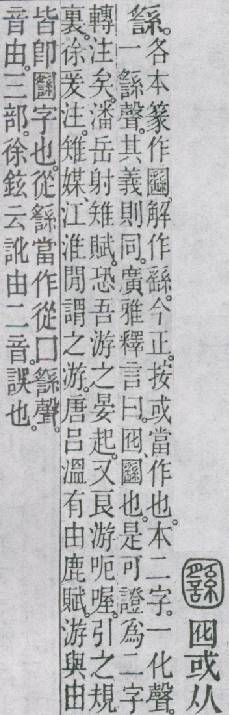 𡈙囮或从
䌛。
各本篆作𡈙。解作繇。今正。按或當作也。本二字。一化聲。
一䌛聲。其義則同。廣雅釋言曰。囮、𡈙也。是可證爲二字
轉注矣。潘岳射雉賦。恐吾游之晏起。又良游呃喔。引之規
裏。徐爰注。雉媒、江淮閒謂之游。唐呂溫有由鹿賦。游與由
皆卽𡈙字也。從䌛當作從囗䌛聲。
音由。三部。徐鉉云訛由二音。誤也。